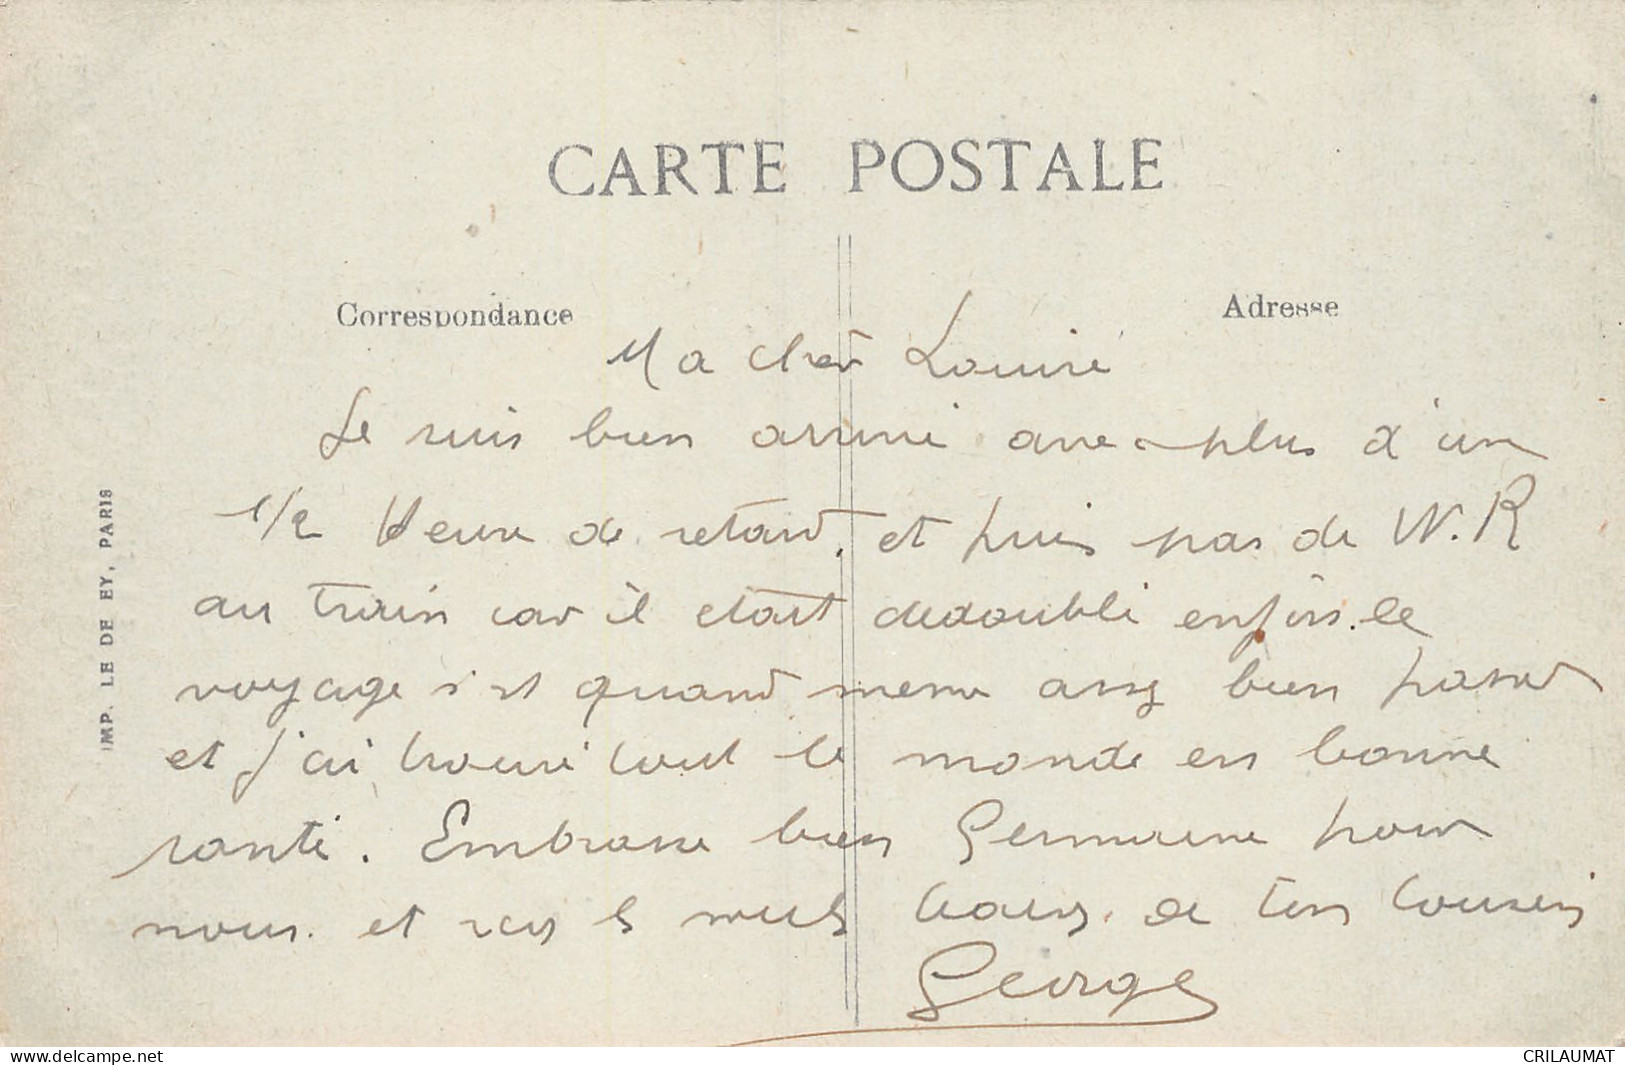 CARTE POSTALE
Correspondance
Adresse
Ma cher Louise
Je suis bien arrivé avec plus d'un
1/2 Heure de retard, et puis pas de W.R
au train car il etait dedoublé enfin le
voyage s'est quand meme assez bien passer
et j'ai trouvé tout le monde en bonne
santé. Embrasse bien Germaine pour
nous. et les de ton Cousin
George
IMP. LE DE EY, PARIS
delcampe.net
CRILAUMAT